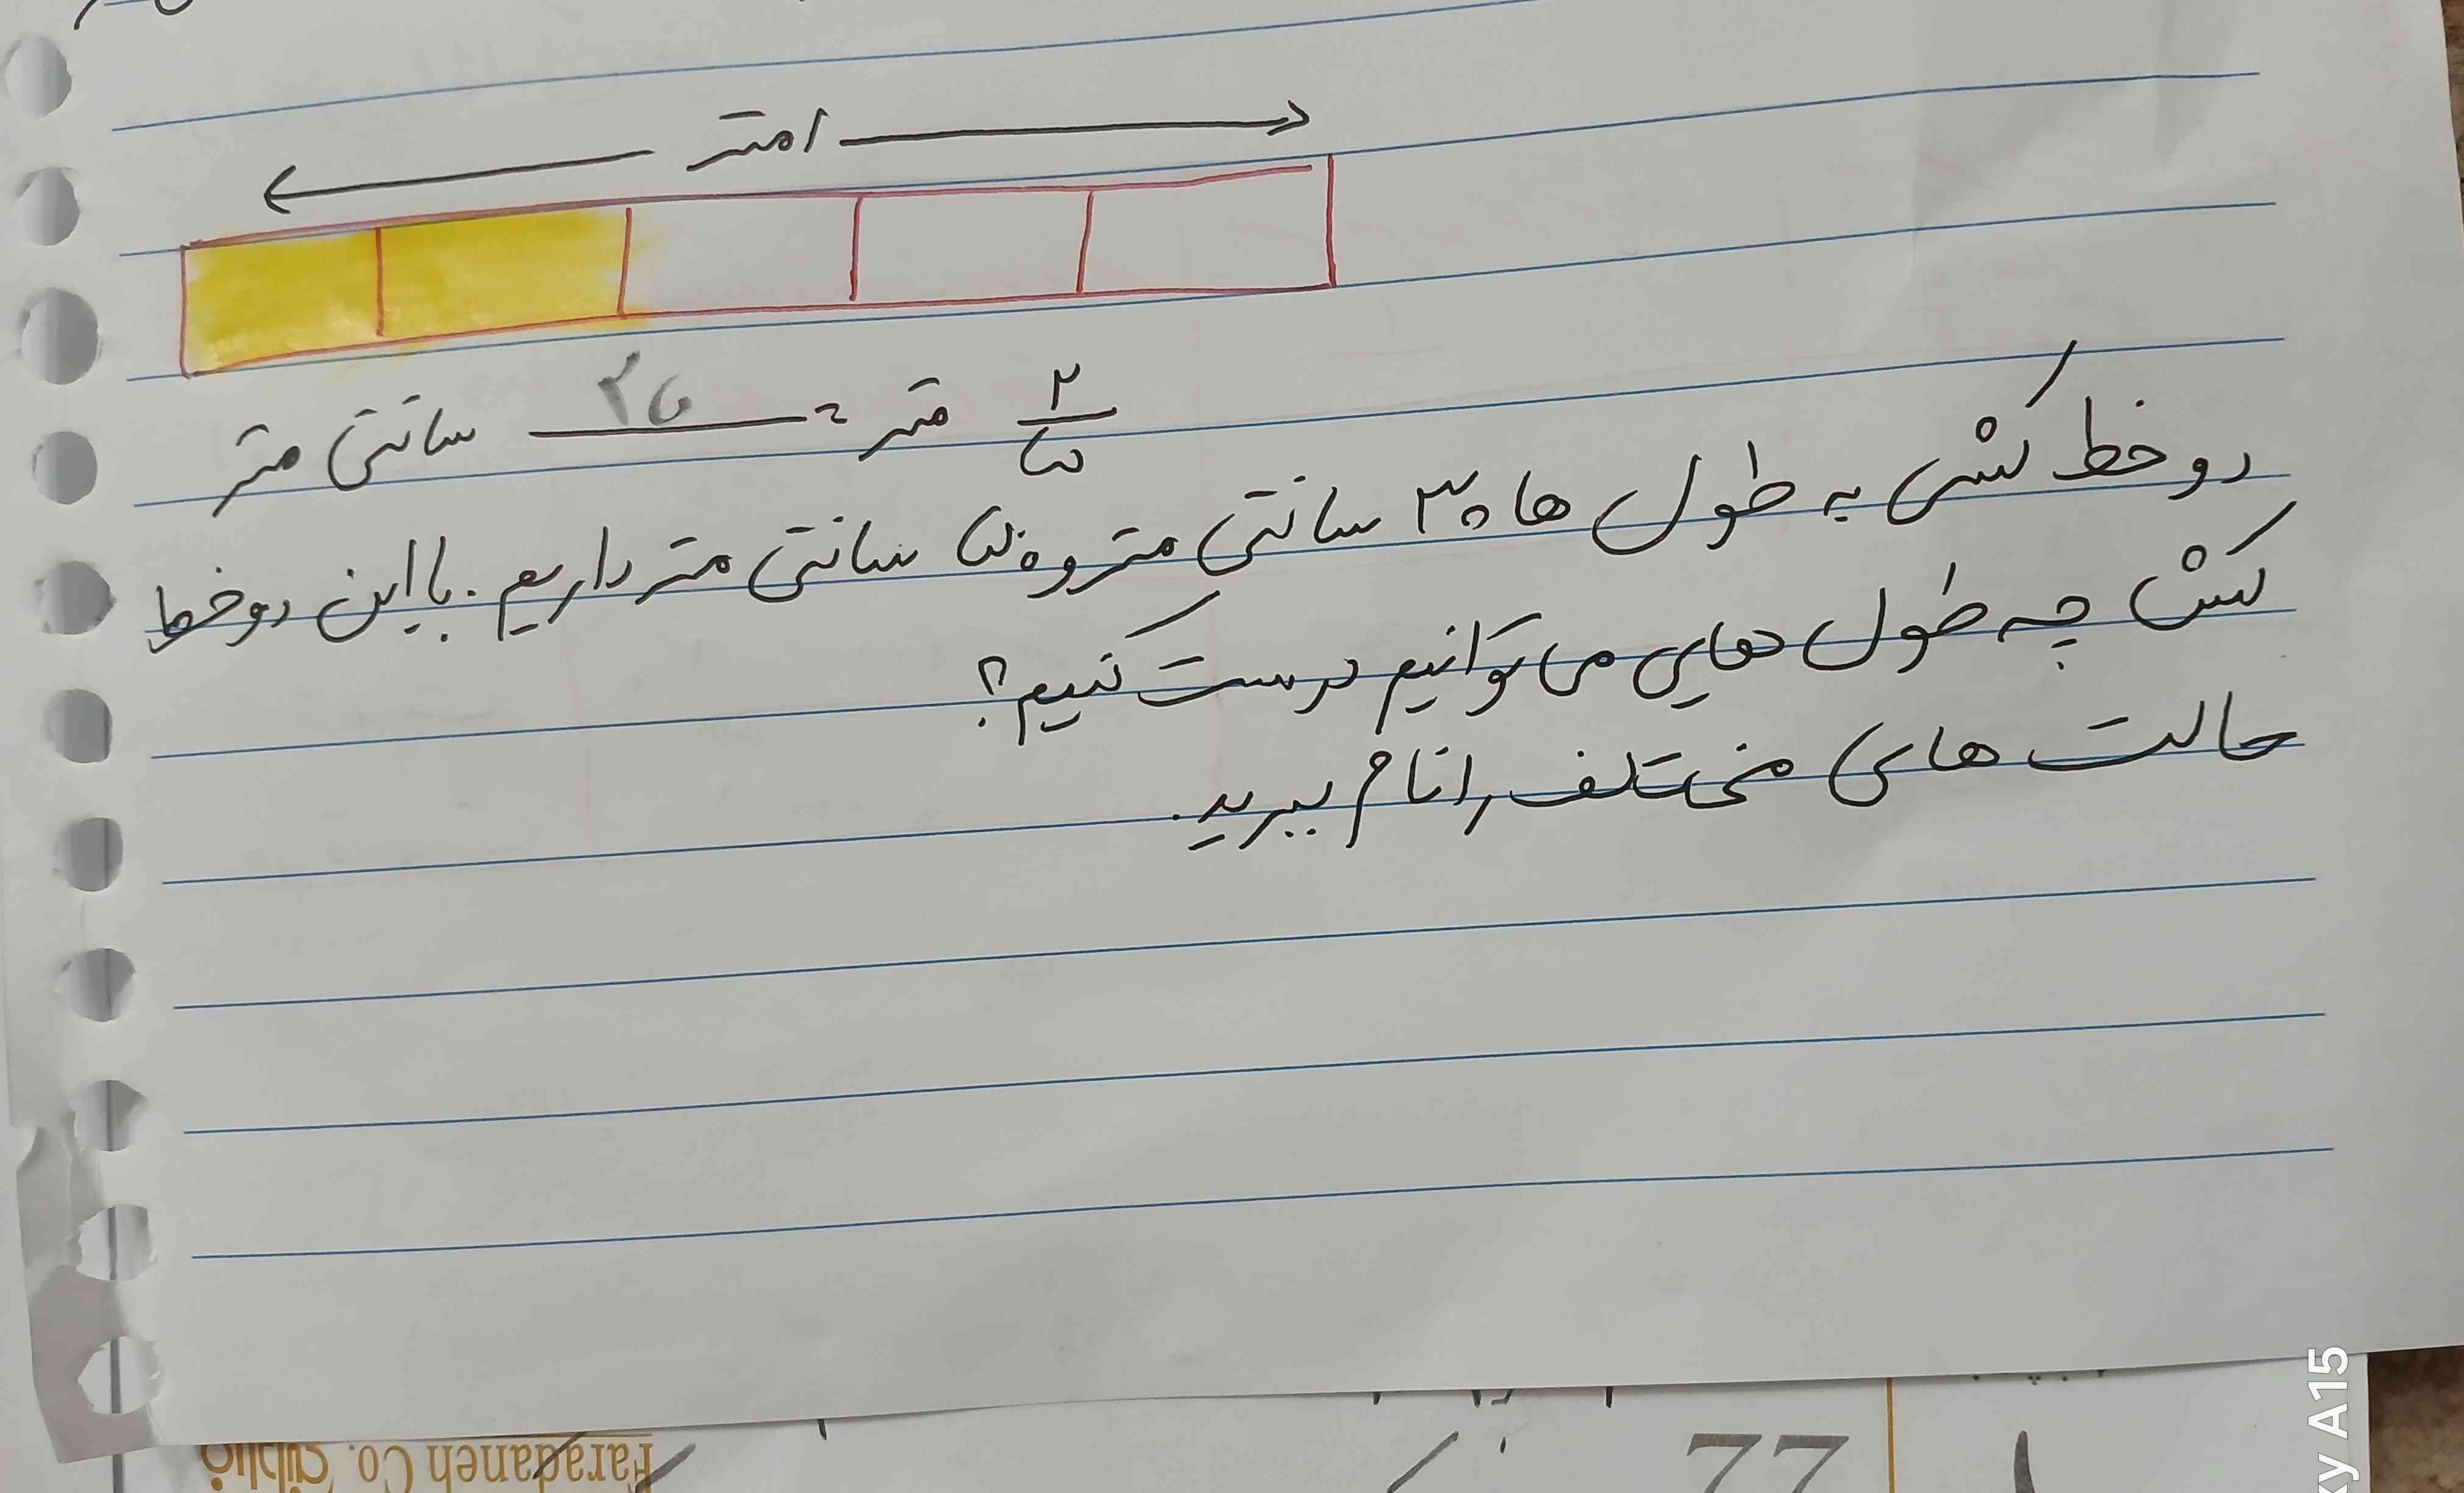 ۱متر
۲/۵ متر = ۲۵ سانتی متر
دو خط کش به طول ها ۳۰ سانتی متر و ۵۰ سانتی متر داریم. با این دو خط
کش چه طول هایی می توانیم درست کنیم؟
حالت های مختلف را نام ببرید.
Faradaneh Co. فرادانه
77
xy A15